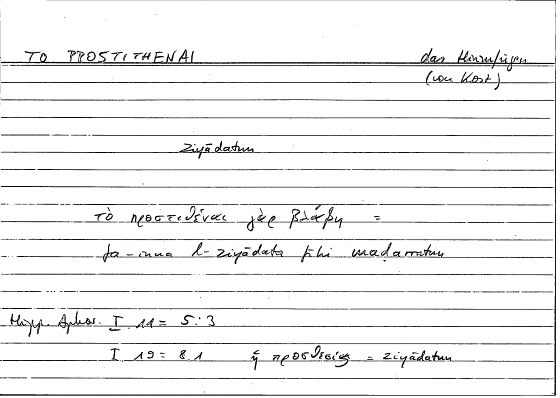 TO PROSTITHENAI das Hinzufügen
(von Kost)
ziyādatun
τὸ προστιθέναι γὰρ βλάβη =
fa-inna l-ziyādata fīhi maḍarratun
Hipp. Aphor. I 11 = 5:3
I 19 = 8.1 ἢ προσθεσις = ziyādatun